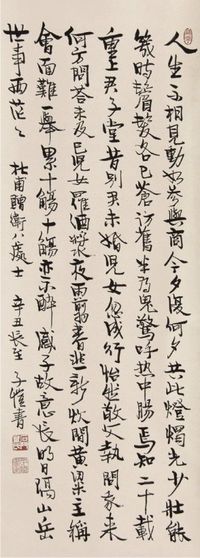 人生不相見動如參與商今夕復何夕共此燈燭光少壯能
幾時鬢髮各已蒼訪舊半為鬼驚呼熱中腸焉知二十載
重上君子堂昔別君未婚兒女忽成行怡然敬父執問我來
何方問答未及已兒女羅酒漿夜雨剪春韭新炊間黃粱主稱
會面難一舉累十觴十觴亦不醉感子故意長明日隔山岳
世事兩茫〻 杜甫贈衛八處士 辛丑長至 子愷書